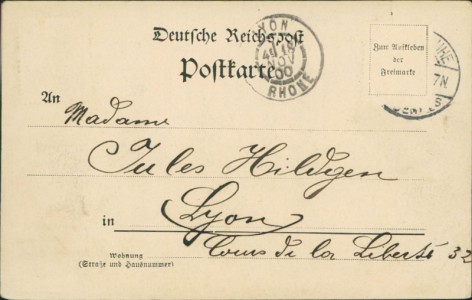 Deutsche Reichspost
Postkarte
LYON
18
NOV
00
RHONE
Zum Aufkleben
der
Freimarke
7N
An
Madame
Jules Hildgen
in Lyon
Cours de la Liberté 32
Wohnung
(Straße und Hausnummer)